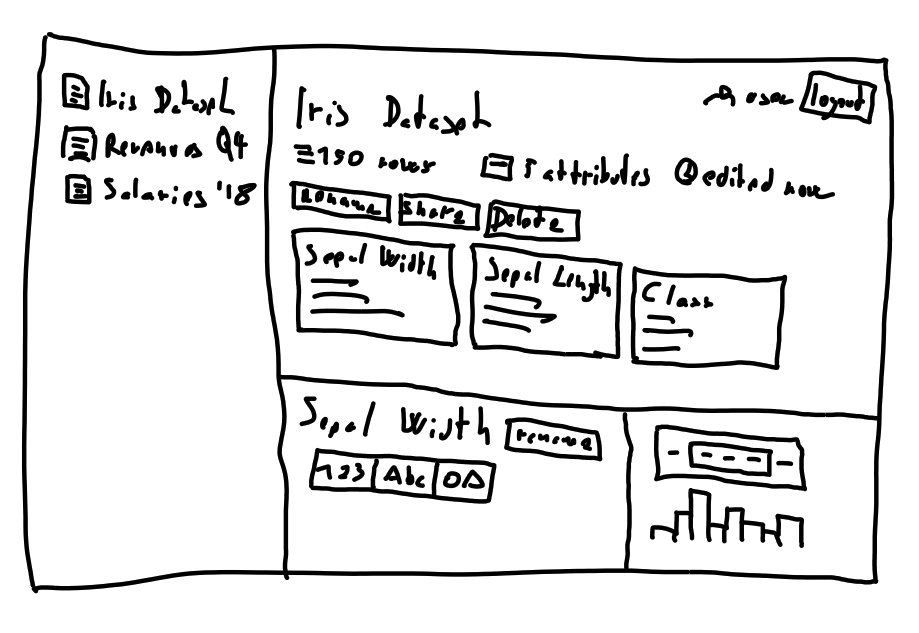 Iris Dataset
Revenues Q4
Salaries '18
user logout
Iris Dataset
150 rows 5 attributes edited now
Rename Share Delete
Sepal Width Sepal Length Class
Sepal Width rename
123 Abc